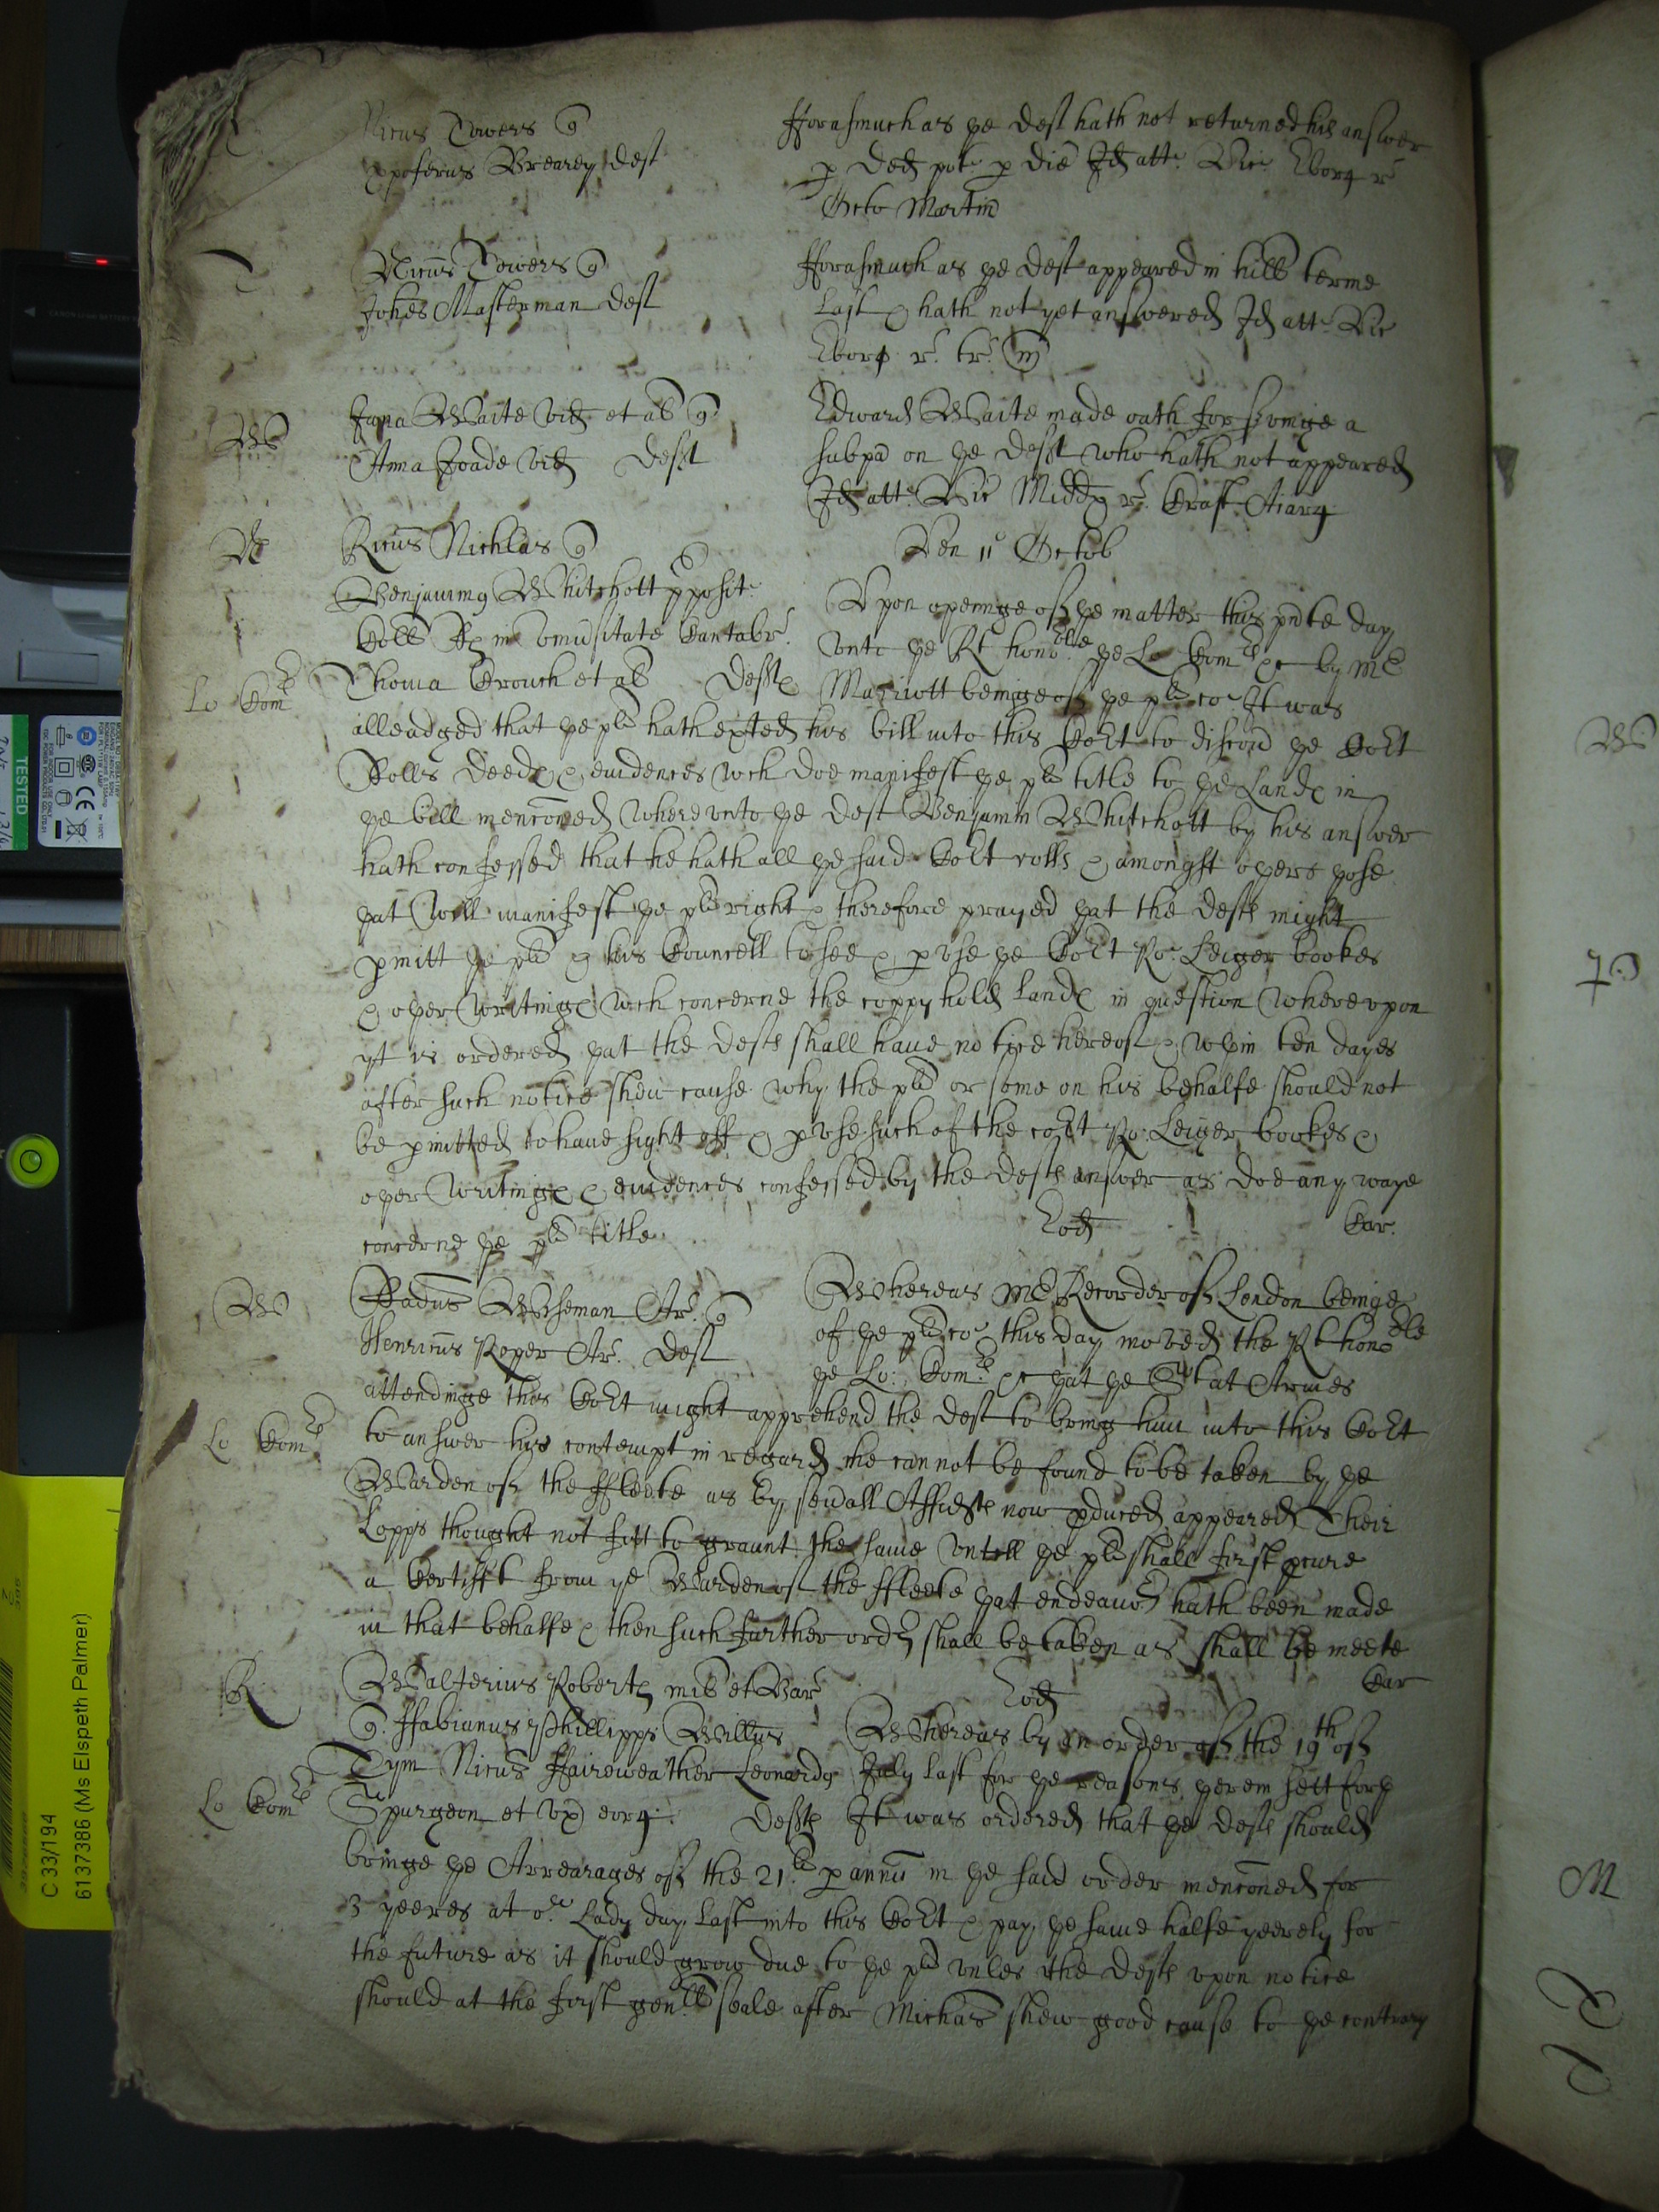 Nicus Towers q
Xpoferus Brearey deft
Forasmuch as ye deft hath not returned his answer
p ded pot p die Id att Vic Ebor r
Octo Martin
Nicus Towers q
Johes Masterman deft
Forasmuch as ye deft appeared in hill terme
last & hath not yet answered Id att Vic
Ebor r tr m
W
Jana Waite vid et al q
Anna Joade vid deft
Edward Waite made oath for servinge a
subpa on ye deft who hath not appeared
Id att Vic Midd r Crast Aiar
N
Ricus Nichlas q
Benjaming Whitchott pposit
Coll R in vniusitate Cantabr
Lo Comrs
Thoma Crouch et al defts
Ven 11 Octob
Vpon openinge of ye matter this pnte day
vnto ye Rt honoble ye Lo Comrs &c by Mr
Marriott beinge of ye pls co It was
alleadged that ye pl hath exted his bill into this Cort to discou ye Cort
Rolls deeds & euidences wch doe manifest ye pls title to ye Lands in
ye bill menconed wherevnto ye deft Benjamin Whitchott by his answer
hath confessed that he hath all ye said Cort rolls & amongst oyers yose
yat will manifest ye pls right & therefore prayed yat the defts might
pmitt ye pl & his Councell to see & pvse ye Cort Ro: Leiger bookes
& oyer writings wch concerne the coppyhold lands in question wherevpon
yt is ordered yat the defts shall haue notice hereof & wthin ten dayes
after such notice shew cause why the pl or some on his behalfe should not
be pmitted to haue sight off & pvse such of the cort Ro: Leiger bookes &
oyer writings & euidences confessed by the defts answer as doe any waye
concerne ye pls title
Eod Car.
W
Radus Wiseman Ar q
Henricus Roper Ar. deft
Lo Comrs
Whereas Mr Recorder of London beinge
of ye pls co this day moved the Rt honoble
ye Lo: Comrs &c yat ye Srt at Armes
attendinge this Cort might apprehend the deft to bring him into this Cort
to answer his contempt in regard he cannot be found to be taken by ye
Warden of the Fleete as by seuall Affidts now pduced appeared Their
Lopps thought not fitt to graunt the same vntill ye pl shall first pcure
a Certifft from ye Warden of the Fleete yat endeauor hath been made
in that behalfe & then such further order shall be taken as shall be meete
Eod Car
R
Walterius Roberts mil et Bar
q. Fabianus Phillipps Willus
Tym Nicus Faireweather Leonardg
Lo Comrs
Spurgeon et vx eor: defts
Whereas by an order of the 19th of
July last for ye reasons yerein sett forth
It was ordered that ye defts should
bringe ye Arrearages of the 21l p annu in ye said order menconed for
3 yeeres at or Lady day last into this Cort & pay ye same halfe yeerely for
the future as it should grow due to ye pl vnles the defts vpon notice
should at the first genll seale after Michas shew good cause to ye contrary
TESTED
C 33/194
6137386 (Ms Elspeth Palmer)
W
M